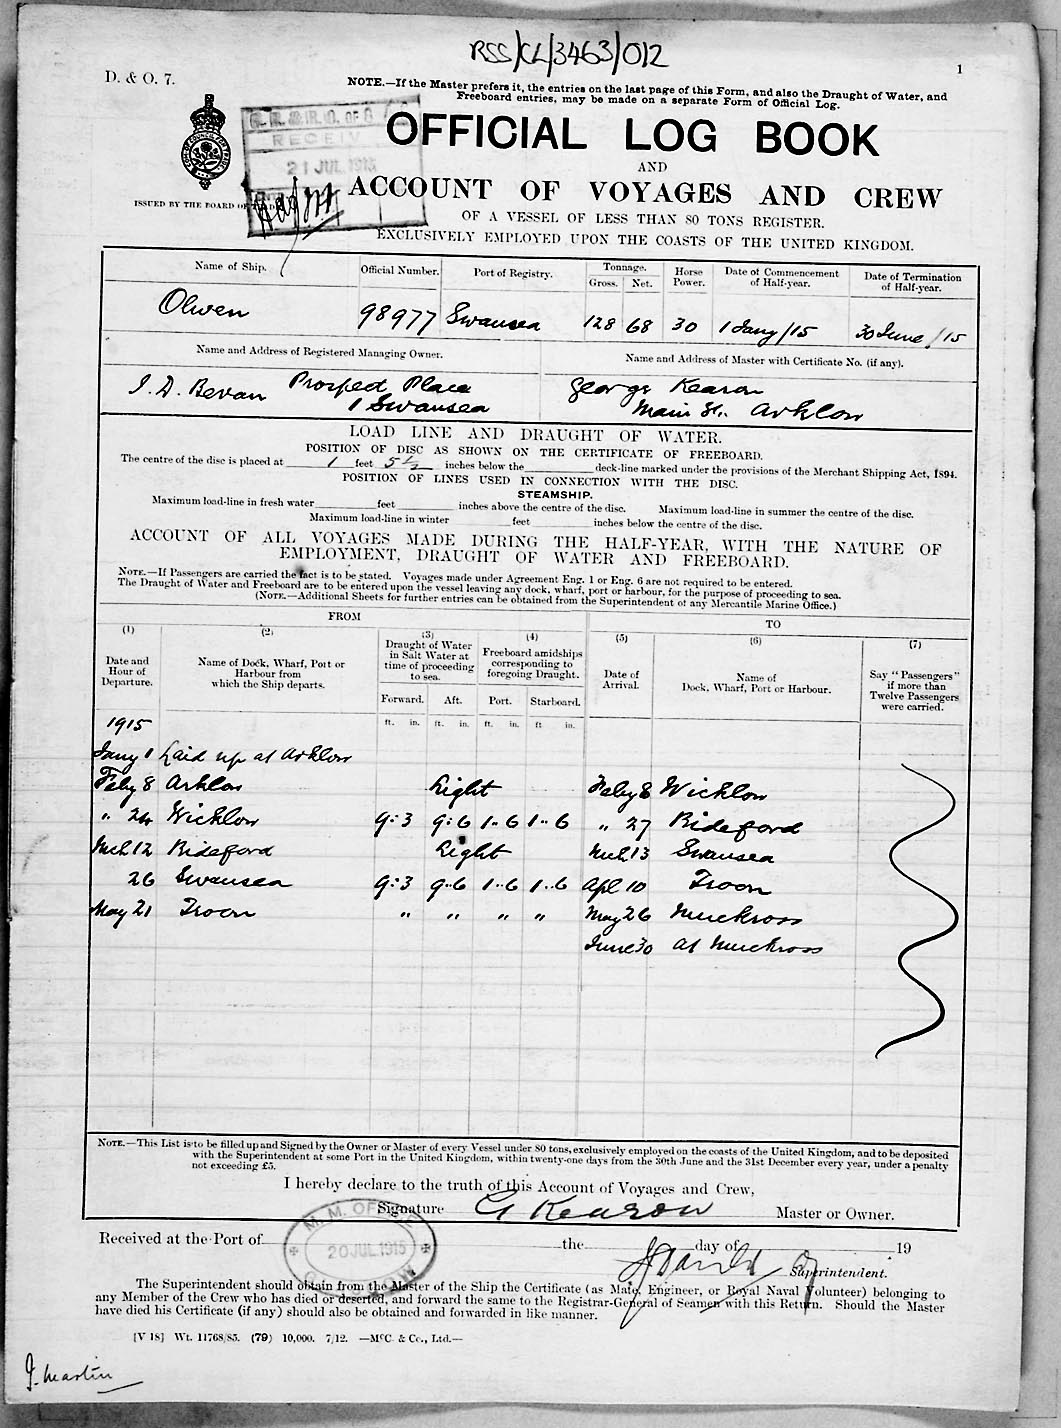 RSS/CL/3463/012
1
D. & O. 7.
NOTE.—If the Master prefers it, the entries on the last page of this Form, and also the Draught of Water, and
Freeboard entries, may be made on a separate Form of Official Log.
RECEIV
21 JUL 1915
OFFICIAL LOG BOOK
AND
ACCOUNT OF VOYAGES AND CREW
ISSUED BY THE BOARD OF
OF A VESSEL OF LESS THAN 80 TONS REGISTER.
EXCLUSIVELY EMPLOYED UPON THE COASTS OF THE UNITED KINGDOM.
Name of Ship. Official Number. Port of Registry. Tonnage. Gross. Net. Horse Power. Date of Commencement of Half-year. Date of Termination of Half-year.
Olwen 98977 Swansea 128 68 30 1 Jany/15 30 June/15
Name and Address of Registered Managing Owner. Name and Address of Master with Certificate No. (if any).
I. D. Bevan Prosped Place George Kearon
1 Swansea Main St. Arklow
LOAD LINE AND DRAUGHT OF WATER.
POSITION OF DISC AS SHOWN ON THE CERTIFICATE OF FREEBOARD.
The centre of the disc is placed at 1 feet 5 1/2 inches below the deck-line marked under the provisions of the Merchant Shipping Act, 1894.
POSITION OF LINES USED IN CONNECTION WITH THE DISC.
STEAMSHIP.
Maximum load-line in fresh water feet inches above the centre of the disc. Maximum load-line in summer the centre of the disc.
Maximum load-line in winter feet inches below the centre of the disc.
ACCOUNT OF ALL VOYAGES MADE DURING THE HALF-YEAR, WITH THE NATURE OF
EMPLOYMENT, DRAUGHT OF WATER AND FREEBOARD.
NOTE.—If Passengers are carried the fact is to be stated. Voyages made under Agreement Eng. 1 or Eng. 6 are not required to be entered.
The Draught of Water and Freeboard are to be entered upon the vessel leaving any dock, wharf, port or harbour, for the purpose of proceeding to sea.
(NOTE.—Additional Sheets for further entries can be obtained from the Superintendent of any Mercantile Marine Office.)
FROM TO
(1) (2) (3) (4) (5) (6) (7)
Date and Hour of Departure. Name of Dock, Wharf, Port or Harbour from which the Ship departs. Draught of Water in Salt Water at time of proceeding to sea. Freeboard amidships corresponding to foregoing Draught. Date of Arrival. Name of Dock, Wharf, Port or Harbour. Say "Passengers" if more than Twelve Passengers were carried.
Forward. Aft. Port. Starboard.
ft. in. ft. in. ft. in. ft in.
1915
Jany 1 Laid up at Arklow
Feby 8 Arklow Light Feby 8 Wicklow
" 24 Wicklow 9:3 9:6 1..6 1..6 " 27 Bideford
Mch 12 Bideford Light Mch 13 Swansea
26 Swansea 9:3 9..6 1..6 1..6 Apl 10 Troon
May 21 Troon " " " " May 26 Muckross
June 30 at Muckross
NOTE.—This List is to be filled up and Signed by the Owner or Master of every Vessel under 80 tons, exclusively employed on the coasts of the United Kingdom, and to be deposited
with the Superintendent at some Port in the United Kingdom, within twenty-one days from the 30th June and the 31st December every year, under a penalty
not exceeding £5.
I hereby declare to the truth of this Account of Voyages and Crew,
Signature G Kearon Master or Owner.
M. M. OFFICE
20 JUL 1915
Received at the Port of the day of 19
Superintendent.
The Superintendent should obtain from the Master of the Ship the Certificate (as Mate, Engineer, or Royal Naval Volunteer) belonging to
any Member of the Crew who has died or deserted, and forward the same to the Registrar-General of Seamen with this Return. Should the Master
have died his Certificate (if any) should also be obtained and forwarded in like manner.
[V 18] Wt. 11768/85. (79) 10,000. 7/12. —McC. & Co., Ltd.—
J. Martin